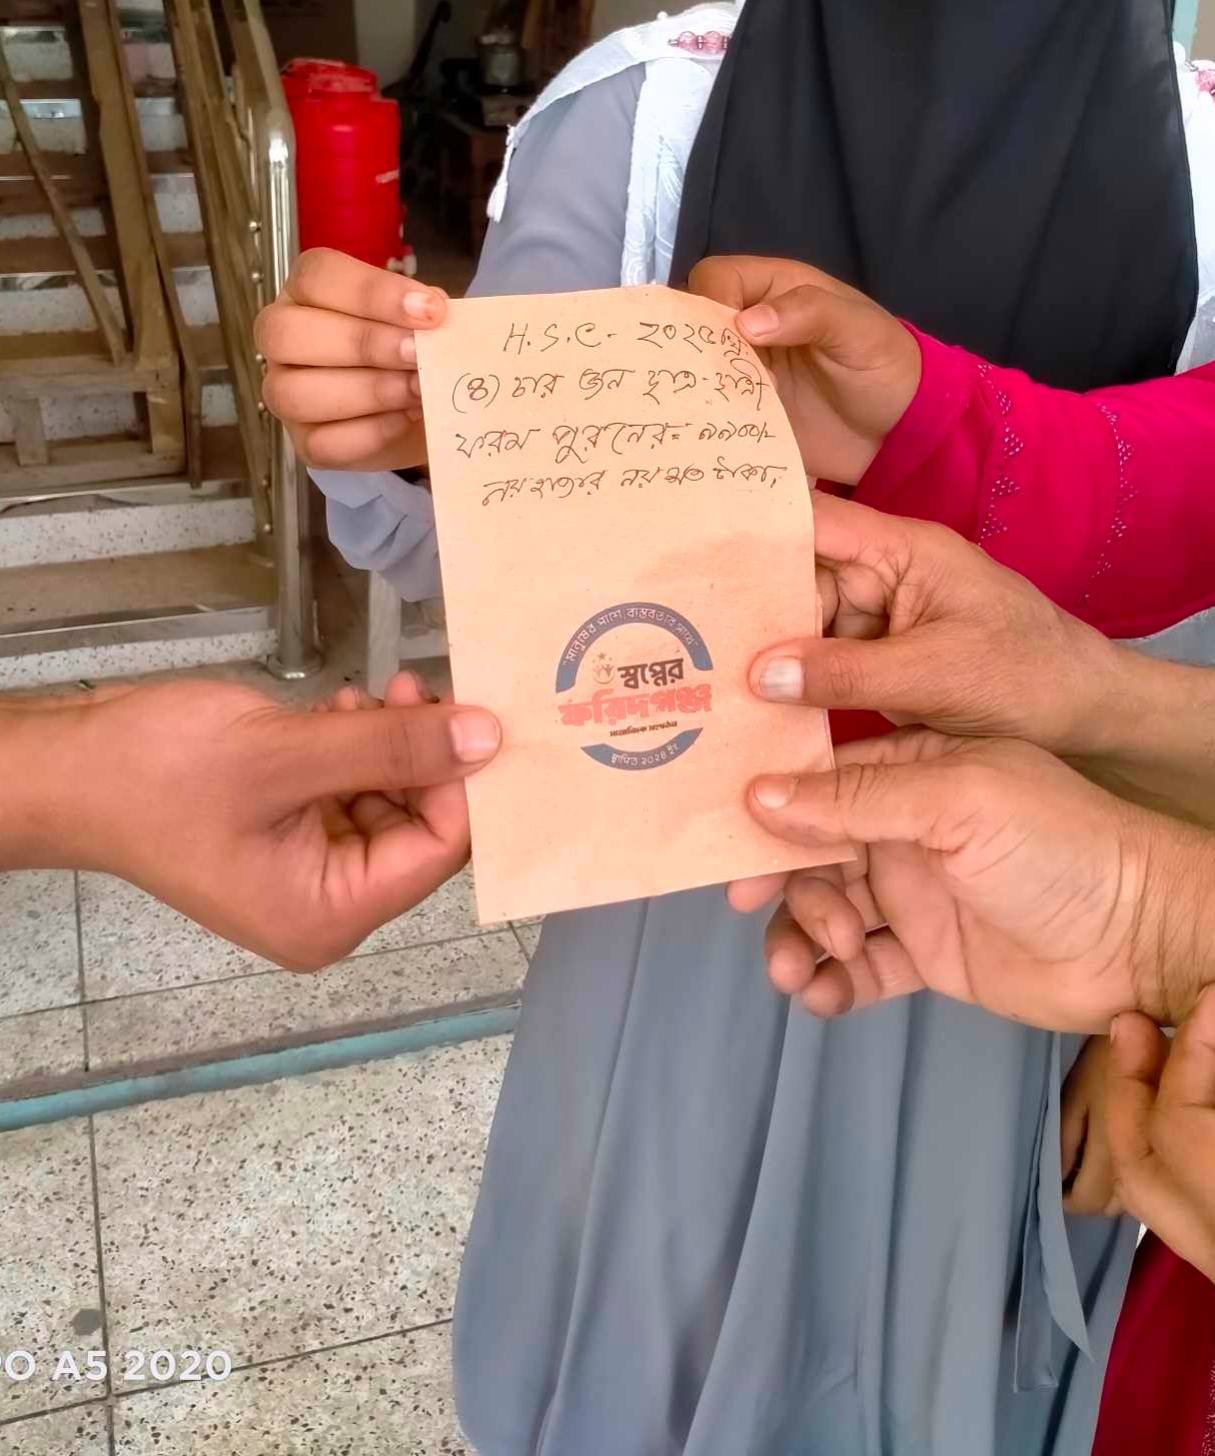 H.S.C- ২০২৫খ্রি.
(৪) চার জন ছাত্র-ছাত্রী
ফরম পুরনের= ৯৯০০/-
নয় হাজার নয় শত টাকা,
"মানুষের পাশে, বাস্তবতার সাথে"
স্বপ্নের
ফরিদগঞ্জ
সামাজিক সংগঠন
স্থাপিত ২০২৪ ইং
PO A5 2020